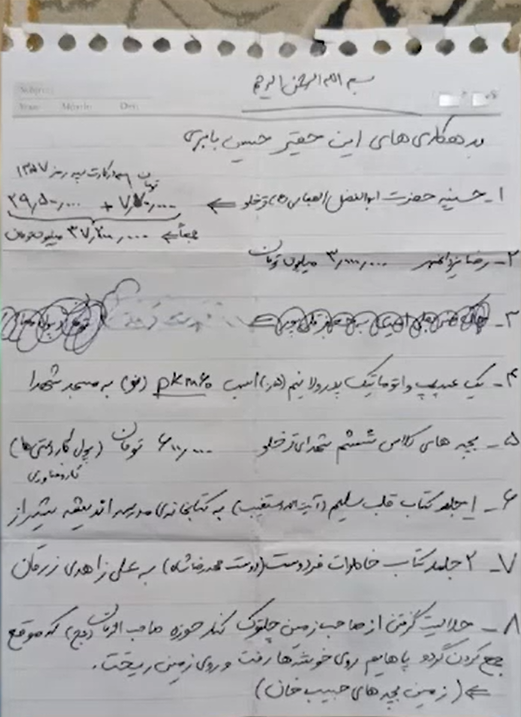 بسم الله الرحمن الرحیم
بدهکاری های این حقیر حسین بابری
۱- حسینیه حضرت ابوالفضل العباس (ع) قزخلو ← ۷,۷۰۰,۰۰۰ + ۲۹,۵۰۰,۰۰۰
جمعاً ← ۳۷,۲۰۰,۰۰۰ میلیون تومان
۲- رضا ۳,۰۰۰,۰۰۰ میلیون تومان
۳-
۴- یک عدد پمپ واتوماتیک پدرولا نیم (۰/۵) اسب pkm60 (نو) به مسجد شهدا
۵- بچه های کلاس ششم شهدای قزخلو ۶۰۰,۰۰۰ تومان (پول کاردستی ها)
کاروفناوری
۶- ۱ جلد کتاب قلب سلیم (آیت الله دستغیب) به کتابخانه ی مدرسه اندیشه شیراز
۷- ۲ جلد کتاب خاطرات فردوست (دوست محمدرضاشاه) به علی زاهدی زرقان
۸- حلالیت گرفتن از صاحب زمین جلوک کنار حوزه صاحب الزمان (عج) که موقع
جمع کردن گردو پاهایم روی خوشه ها رفت و روی زمین ریخت.
← (زمین بچه های حبیب خان)